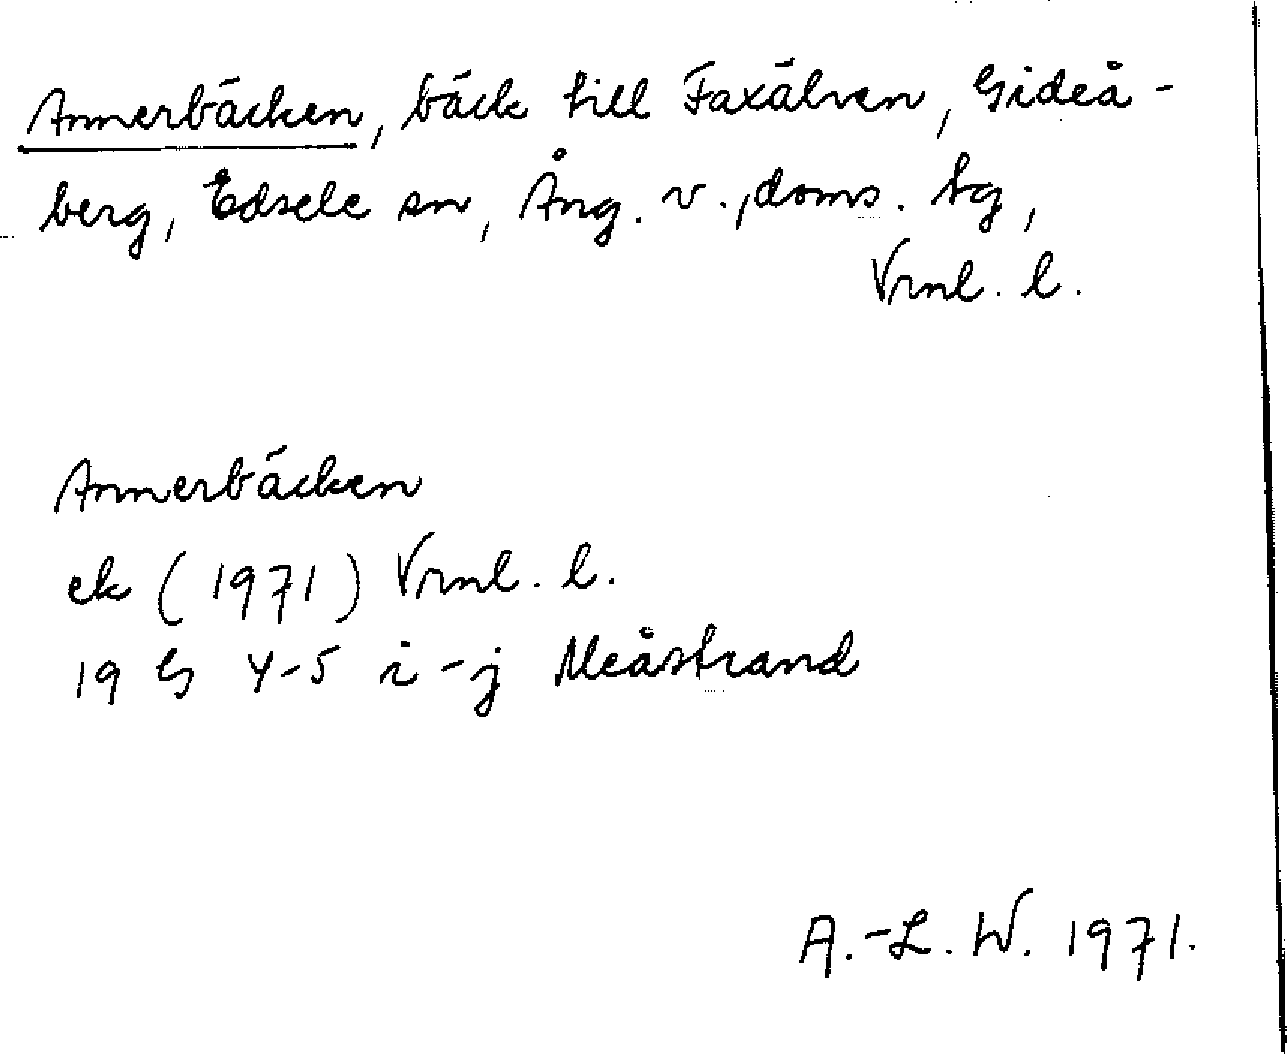 Annerbäcken, bäck till Faxälven, Gideå-
berg, Edsele sn, Ång. v., doms. tg,
Vrnl. l.
Annerbäcken
ek (1971) Vrnl. l.
19 G 4-5 i-j Meåstrand
A.-L. W. 1971.